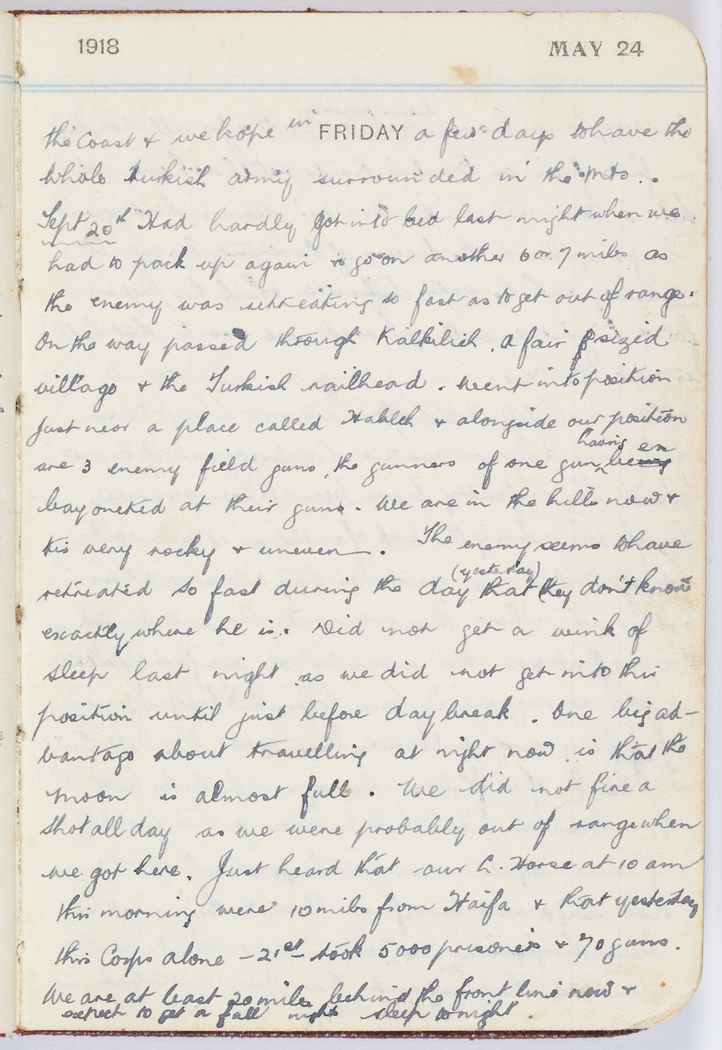 1918 MAY 24
the coast & we hope in FRIDAY a few days to have the
whole Turkish army surrounded in the mts..
Sept 20th Had hardly got into bed last night when we
had to pack up again & go on another 6 or 7 miles as
the enemy was retreating so fast as to get out of range.
On the way passed through Kalkilieh, a fair sized
village & the Turkish railhead. Went into position
just near a place called Hableh & alongside our position
are 3 enemy field guns, the gunners of one gun having been
bayoneted at their guns. We are in the hills now &
tis very rocky & uneven. The enemy seems to have
retreated so fast during the day (yesterday) that they don't know
exactly where he is. Did not get a wink of
sleep last night as we did not get into this
position until just before daybreak. One big ad-
vantage about travelling at night now is that the
moon is almost full. We did not fire a
shot all day as we were probably out of range when
we got here. Just heard that our L. Horse at 10 am
this morning were 10 miles from Haifa & that yesterday
this Corps alone - 21st - took 5000 prisoners & 70 guns.
We are at least 20 miles behind the front line now &
expect to get a full night sleep tonight.